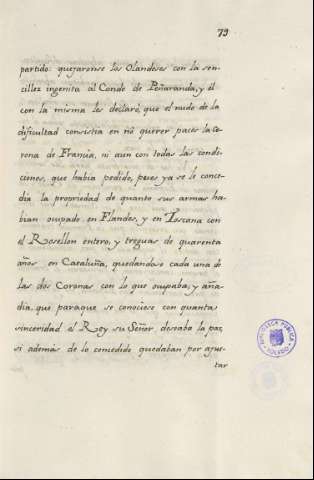 79
partido: quejaronse los Olandeses con la sen-
cillez ingenita al Conde de Peñaranda, y él
con la misma les declaró, que el nudo de la
dificultad consistia en nó querer paces la Co-
rona de Francia, ni aun con todas las condi-
ciones, que habia pedido, pues ya se le conce-
dia la propriedad de quanto sus armas ha-
bian ocupado en Flandes, y en Toscana con
el Rosellon entero, y treguas de quarenta
años en Cataluña, quedandose cada una de
las dos Coronas con lo que ocupaba, y aña-
dia, que paraque se conociese con quanta
sinceridad el Rey su Señor deseaba la paz,
si además de lo concedido quedaban por ajus-
tar
BIBLIOTECA PUBLICA
TOLEDO